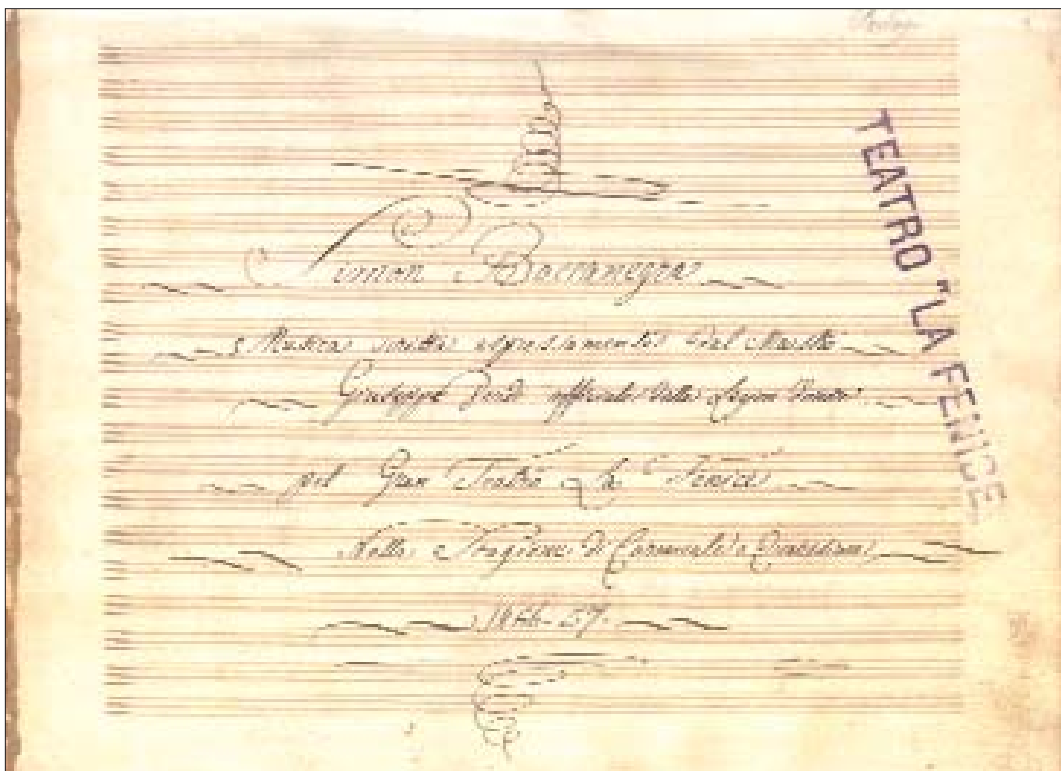 Prologo
Simon Boccanegra
Musica scritta espressamente dal Maestro
Giuseppe Verdi offiziale della Legion d'onore
pel Gran Teatro La Fenice
Nella Stagione di Carnevale e Quaresima
1856-57.
TEATRO "LA FENICE